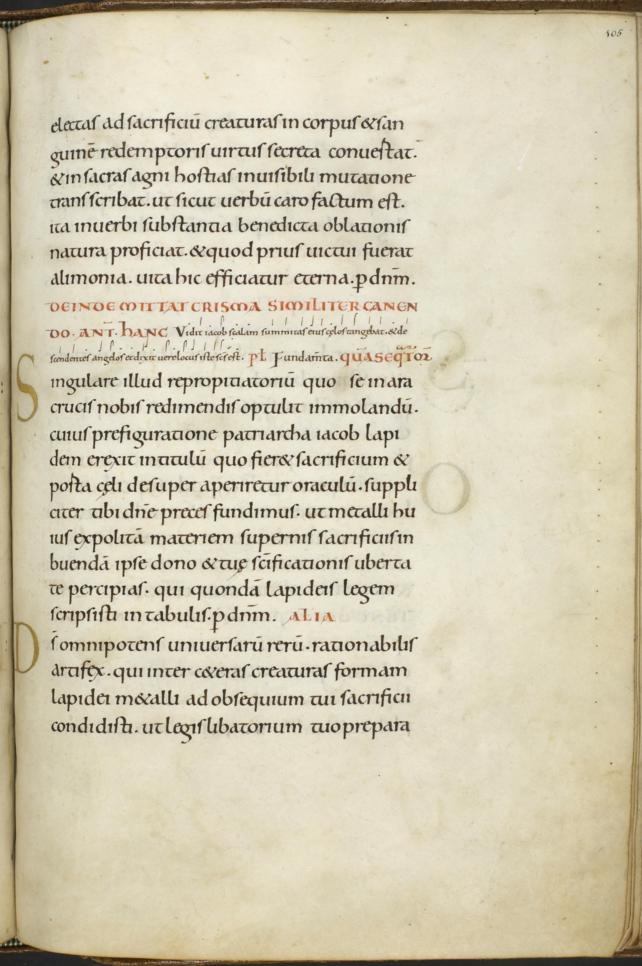 105
electas ad sacrificiū creaturas in corpus & san
guinē redemptoris uirtus secreta conuestat.
& in sacras agni hostias inuisibili mutatione
transscribat. ut sicut uerbū caro factum est.
ita inuerbi substantia benedicta oblationis
natura proficiat. & quod prius uictui fuerat
alimonia. uita hic efficiatur eterna. p̱ dn̄m.
DEINDE MITTAT CRISMA SIMILITER CANEN
DO. ANT̄. hANC Vidit iacob scalam summitas eius cęlos tangebat. & de
scendentes angelos et dixit uere locus iste sc̄s est. pł Fundam̄ta. QUĀ SEQT̄OR
Singulare illud repropitiatoriū quo se in ara
crucis nobis redimendis optulit immolandū.
cuius prefiguratione patriarcha iacob lapi
dem erexit in titulū quo fier& sacrificium &
posta cęli desuper aperiretur oraculū. suppli
citer tibi dn̄e preces fundimus. ut metalli hu
ius expolitā materiem supernis sacrificiis in
buendā ipse dono & tuę sc̄ificationis uberta
te percipias. qui quondā lapideis legem
scripsisti in tabulis. p̱ dn̄m. ALIA
Ds̄ omnipotens uniuersarū rerū. rationabilis
artifex. qui inter c&eras creaturas formam
lapidei m&alli ad obsequium tui sacrificii
condidisti. ut legis libatorium tuo prepara